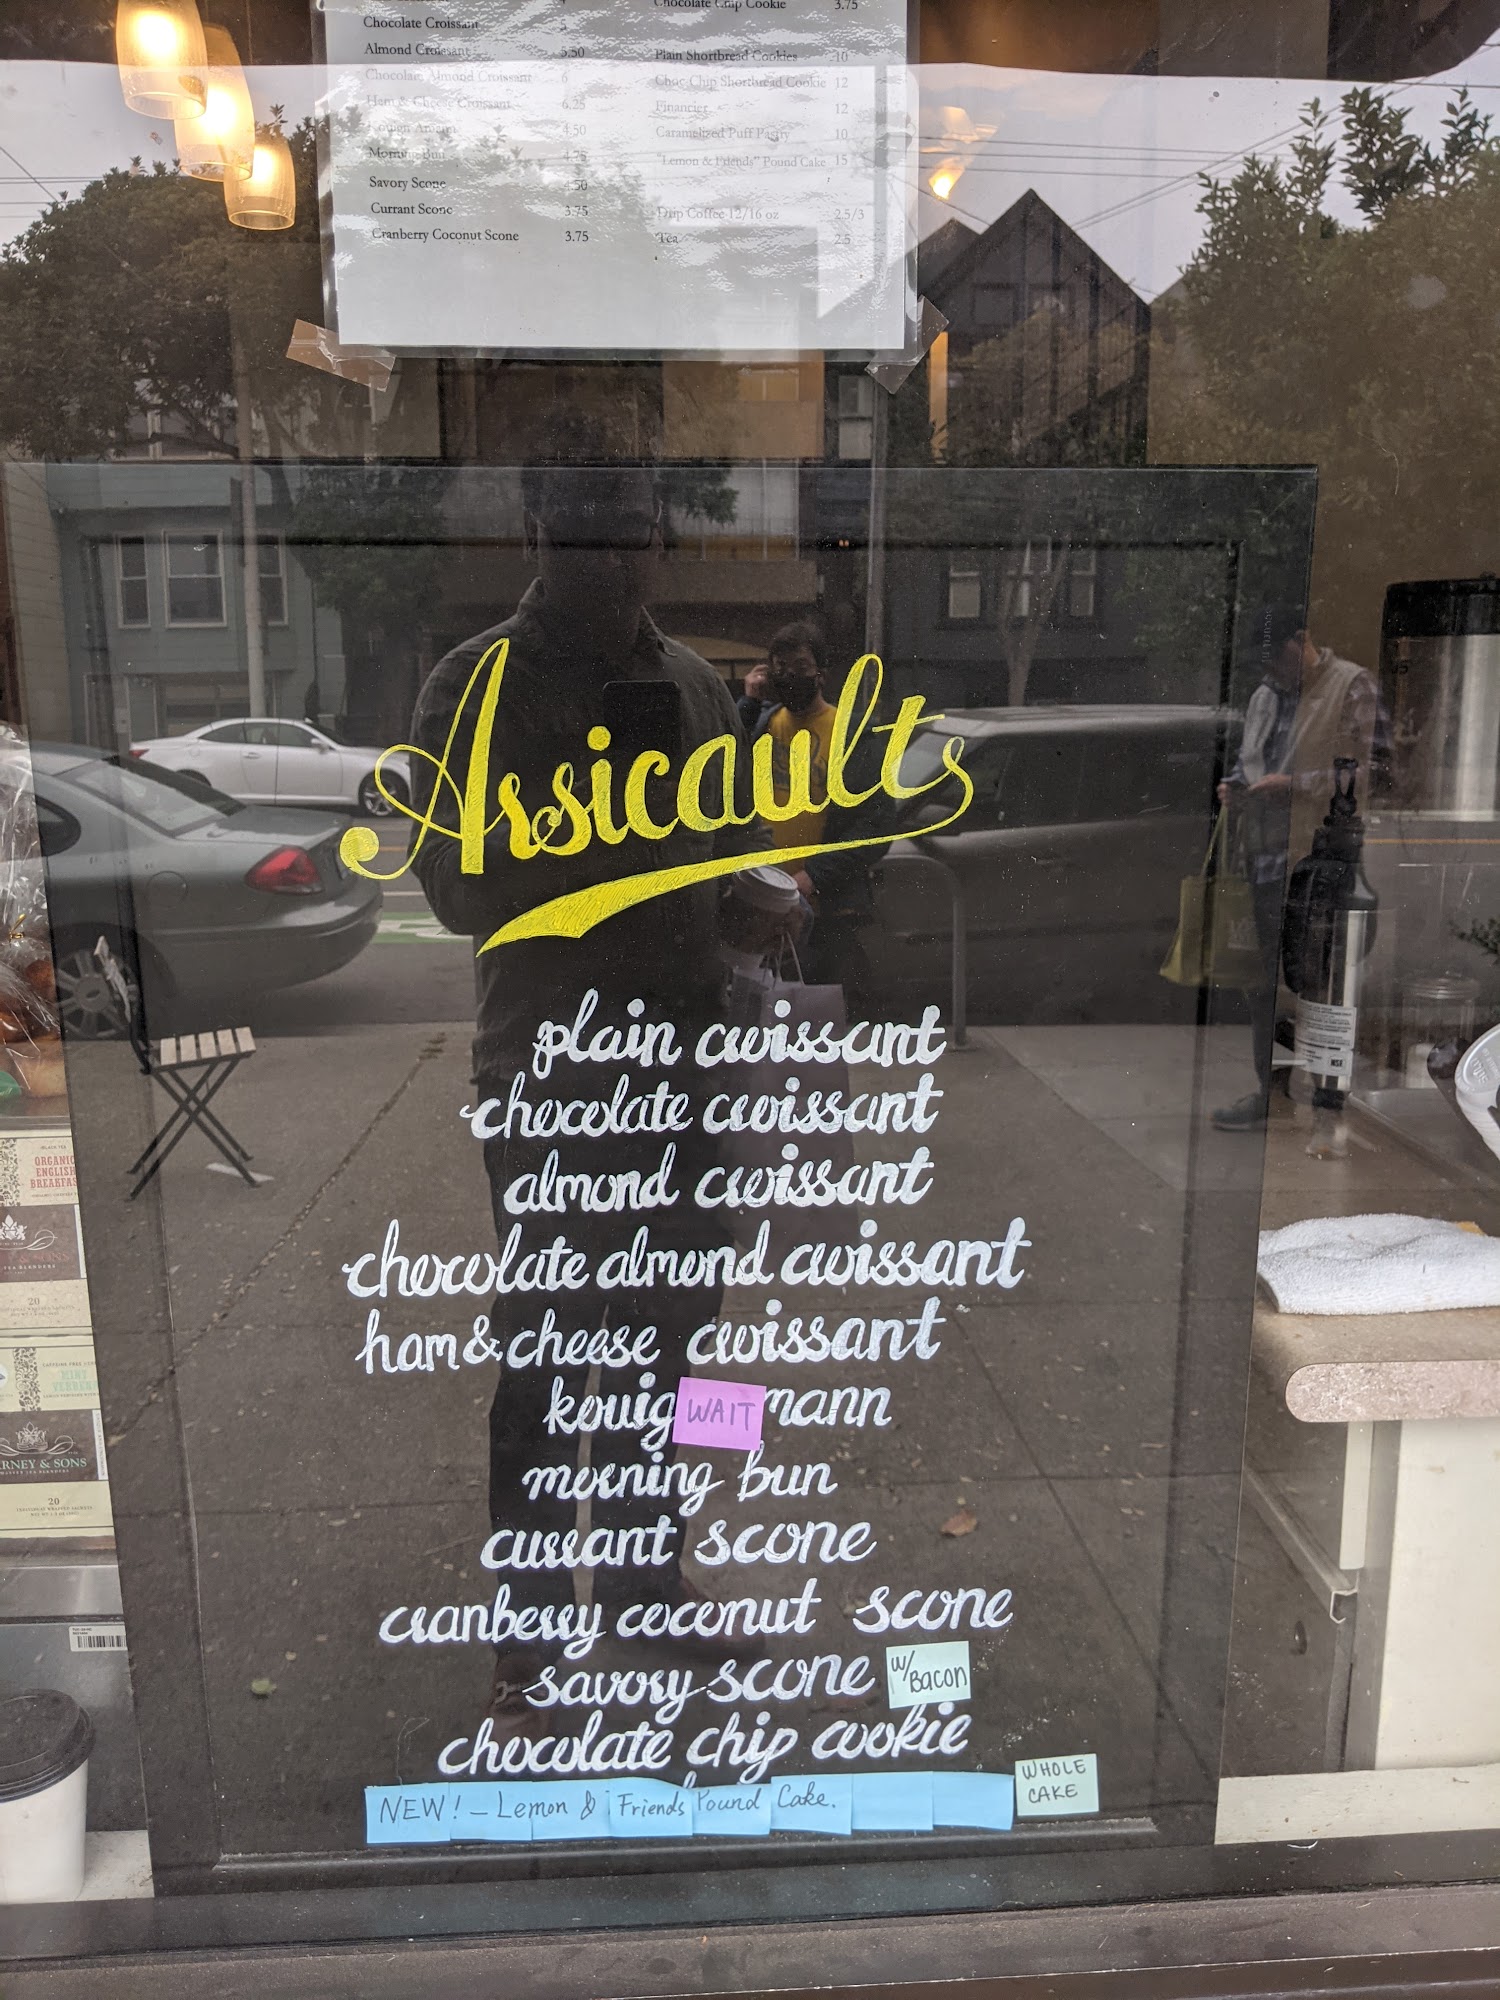 Chocolate Chip Cookie 3.75
Chocolate Croissant
Almond Croissant 5.50
Plain Shortbread Cookies 10
Chocolate Almond Croissant 6
Choc Chip Shortbread Cookie 12
Ham & Cheese Croissant 6.25
Financier 12
Kouign Amann 4.50
Caramelized Puff Pastry 10
Morning Bun 4.75
"Lemon & Friends" Pound Cake 15
Savory Scone 4.50
Currant Scone 3.75
Drip Coffee 12/16 oz 2.5/3
Cranberry Coconut Scone 3.75
Tea 2.5
Arsicault
plain croissant
chocolate croissant
almond croissant
chocolate almond croissant
ham & cheese croissant
kouig
WAIT
mann
morning bun
currant scone
cranberry coconut scone
savory scone
w/ Bacon
chocolate chip cookie
NEW! - Lemon & Friends Pound Cake.
WHOLE
CAKE
ORGANIC
ENGLISH
BREAKFAS
20
MINT
RNEY & SONS
20
NSF